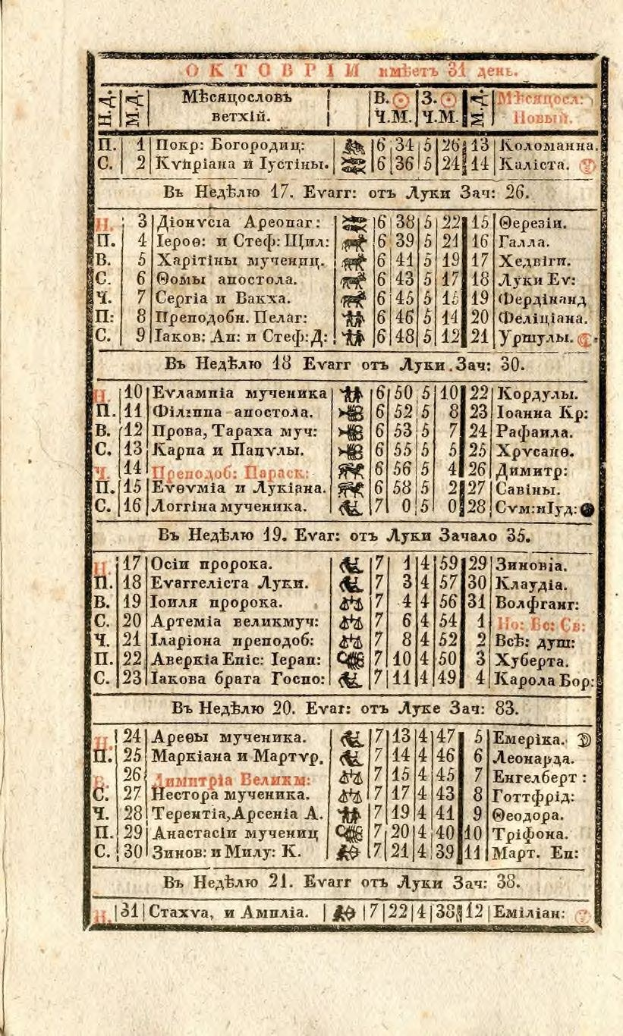 ОКТОВРІЙ имѣетъ 31 день.
Н.Д. М.Д. Мѣсяцословъ ветхій. В. Ч.М. З. Ч.М. М.Д. Мѣсяцосл: Новый.
П. 1 Покр: Богородиц: 6 34 5 26 13 Коломанна.
С. 2 Кѵпріана и Іустіны. 6 36 5 24 14 Каліста.
Въ Недѣлю 17. Еѵагг: отъ Луки Зач: 26.
Н. 3 Діонѵсіа Ареопаг: 6 38 5 22 15 Ѳерезіи.
П. 4 Іероѳ: и Стеф: Щил: 6 39 5 21 16 Галла.
В. 5 Харітіны мучениц. 6 41 5 19 17 Хедвігп.
С. 6 Ѳомы апостола. 6 43 5 17 18 Луки Еѵ:
Ч. 7 Сергіа и Вакха. 6 45 5 15 19 Фердінанд
П: 8 Преподобн. Пелаг: 6 46 5 14 20 Феліціана.
С. 9 Іаков: Ап: и Стеф: Д: 6 48 5 12 21 Уршулы.
Въ Недѣлю 18 Еѵагг отъ Луки. Зач: 30.
Н. 10 Еѵлампіа мученика 6 50 5 10 22 Кордулы.
П. 11 Філіппа апостола. 6 52 5 8 23 Іоанна Кр:
В. 12 Прова, Тараха муч: 6 53 5 7 24 Рафаила.
С. 13 Карпа и Папѵлы. 6 55 5 5 25 Хрѵсанѳ.
Ч. 14 Преподоб: Параск: 6 56 5 4 26 Димитр:
П. 15 Еѵѳѵміа и Лукіана. 6 58 5 2 27 Савіны.
С. 16 Логгіна мученика. 7 0 5 0 28 Сѵм: иІуд:
Въ Недѣлю 19. Еѵаг: отъ Луки Зачало 35.
Н. 17 Осіи пророка. 7 1 4 59 29 Зиновіа.
П. 18 Еѵаггеліста Луки. 7 3 4 57 30 Клаудіа.
В. 19 Іоиля пророка. 7 4 4 56 31 Волфганг:
С. 20 Артеміа великмуч: 7 6 4 54 1 Но: Вс: Св:
Ч. 21 Іларіона преподоб: 7 8 4 52 2 Всѣ: душ:
П. 22 Аверкіа Епіс: Іерап: 7 10 4 50 3 Хуберта.
С. 23 Іакова брата Госпо: 7 11 4 49 4 Карола Бор:
Въ Недѣлю 20. Еѵаг: отъ Луке Зач: 83.
Н. 24 Ареѳы мученика. 7 13 4 47 5 Емеріка.
П. 25 Маркіана и Мартѵр. 7 14 4 46 6 Леонарда.
В. 26 Димитріа Великм: 7 15 4 45 7 Енгелберт:
С. 27 Нестора мученика. 7 17 4 43 8 Готтфрід:
Ч. 28 Терентіа, Арсеніа А. 7 19 4 41 9 Ѳеодора.
П. 29 Анастасіи мучениц 7 20 4 40 10 Тріфона.
С. 30 Зинов: и Милу: К. 7 21 4 39 11 Март. Еп:
Въ Недѣлю 21. Еѵагг отъ Луки Зач: 38.
Н. 31 Стахѵа, и Ампліа. 7 22 4 38 12 Еміліан: